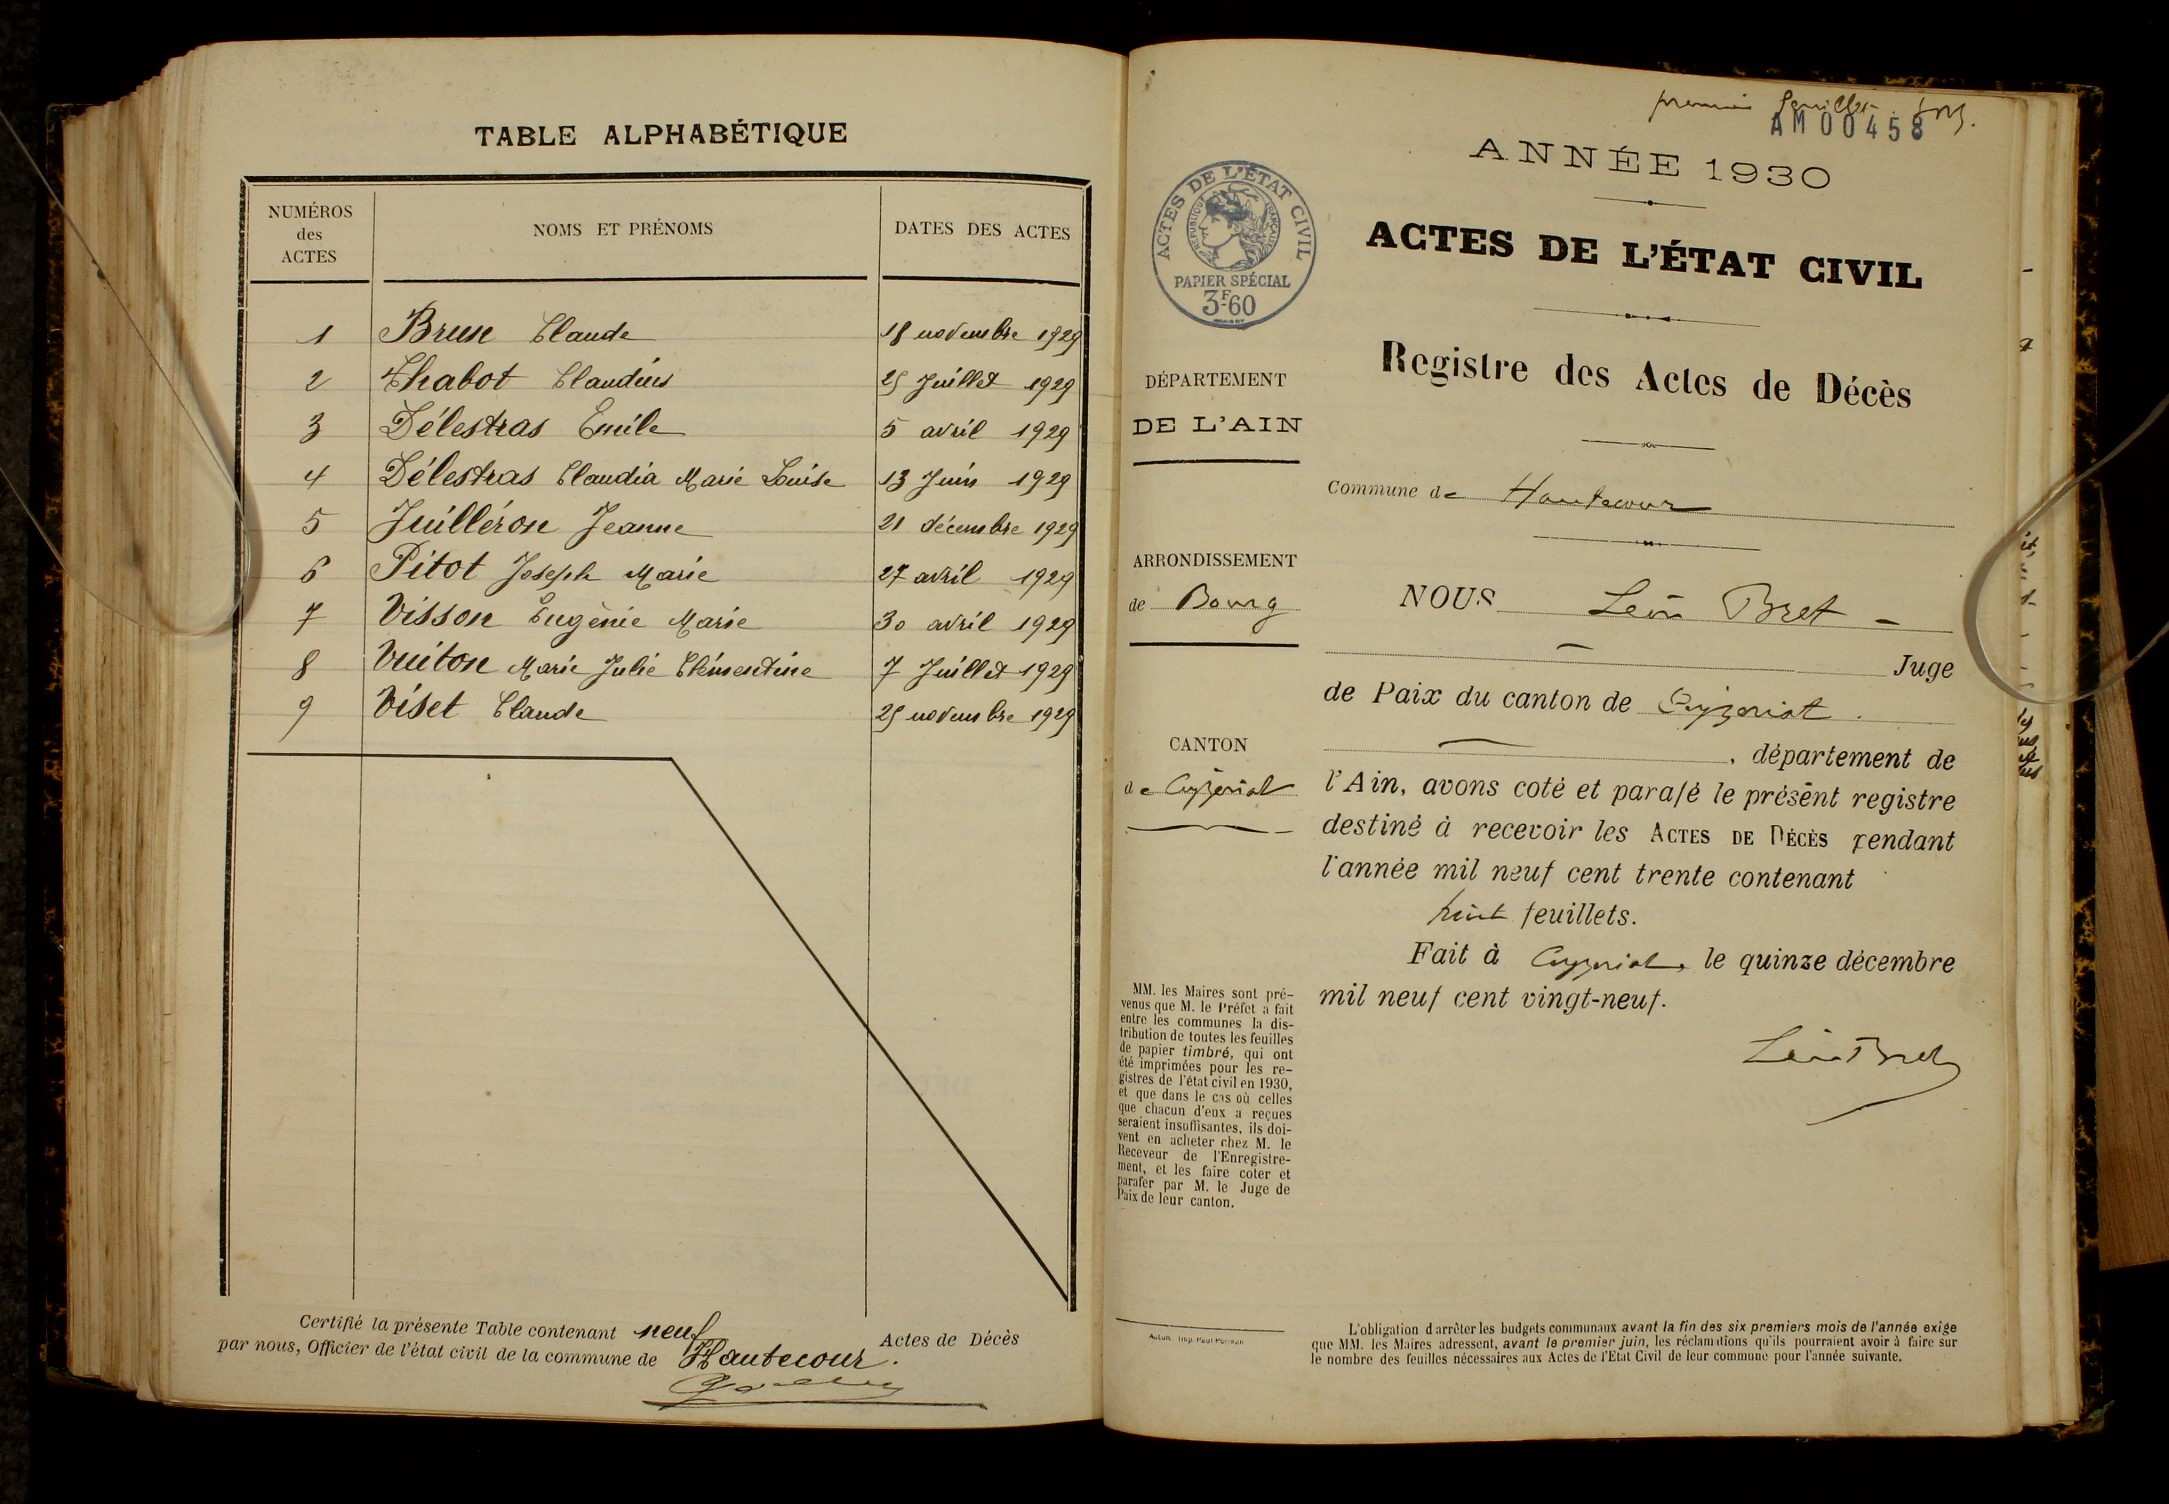 TABLE ALPHABÉTIQUE
NUMÉROS des ACTES NOMS ET PRÉNOMS DATES DES ACTES
1 Brun Claude 18 novembre 1929
2 Chabot Claudius 25 Juillet 1929
3 Délestras Emile 5 avril 1929
4 Délestras Claudia Marie Louise 13 Juin 1929
5 Juilléron Jeanne 21 décembre 1929
6 Pitot Joseph Marie 27 avril 1929
7 Visson Eugènie Marie 30 avril 1929
8 Vuiton Marie Julie Clémentine 7 Juillet 1929
9 Viset Claude 25 novembre 1929
Certifié la présente Table contenant neuf Actes de Décès
par nous, Officier de l'état civil de la commune de Hautecour.
premier
AM00458
ANNÉE 1930
ACTES DE L'ÉTAT CIVIL
RÉPUBLIQUE FRANÇAISE
PAPIER SPÉCIAL
3F60
ACTES DE L'ÉTAT CIVIL
Registre des Actes de Décès
DÉPARTEMENT
DE L'AIN
Commune de Hautecour
ARRONDISSEMENT
de Bourg
CANTON
de Ceyzériat
NOUS Léon Bret
Juge
de Paix du canton de Ceyzeriat.
, département de
l'Ain, avons coté et parafé le présent registre
destiné à recevoir les ACTES DE DÉCÈS pendant
l'année mil neuf cent trente contenant
huit feuillets.
Fait à Ceyzeriat, le quinze décembre
mil neuf cent vingt-neuf.
Léon Bret
MM. les Maires sont pré-
venus que M. le Préfet a fait
entre les communes la dis-
tribution de toutes les feuilles
de papier timbré, qui ont
été imprimées pour les re-
gistres de l'état civil en 1930,
et que dans le cas où celles
que chacun d'eux a reçues
seraient insuffisantes, ils doi-
vent en acheter chez M. le
Receveur de l'Enregistre-
ment, et les faire coter et
parafer par M. le Juge de
Paix de leur canton.
L'obligation d'arrêter les budgets communaux avant la fin des six premiers mois de l'année exige
que MM. les Maires adressent, avant le premier juin, les réclamations qu'ils pourraient avoir à faire sur
le nombre des feuilles nécessaires aux Actes de l'Etat Civil de leur commune pour l'année suivante.